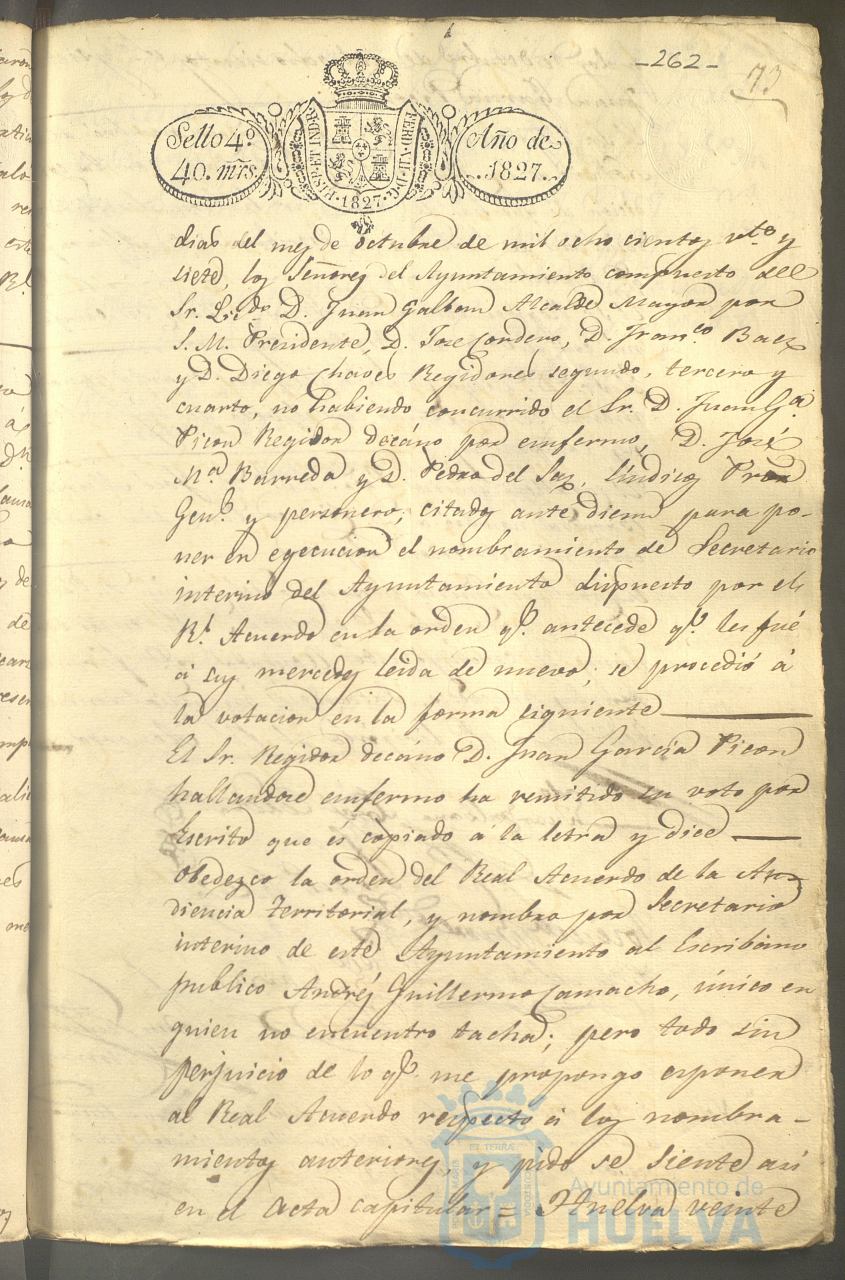 -262-
73
Sello 4º
40. mrs.
HISP. ET IND. R. 1827. FERD. VII. D. G.
Año de
1827.
dias del mes de octubre de mil ocho cientos vte. y
siete, los Señores del Ayuntamiento compuesto del
Sr. Licdo D. Juan Galban Alcalde Mayor por
S. M. Presidente, D. Jose Cordero, D. Franco Baez
y D. Diego Chaves Regidores segundo, tercero y
cuarto, no habiendo concurrido el Sr. D. Juan Ga.
Picon Regidor decáno por enfermo, D. José
Ma. Barreda y D. Pedro del Saz, Síndicos Pror.
Genl. y personero; citados ante diem para po-
ner en egecucion el nombramiento de Secretario
interino del Ayuntamiento dispuesto por el
Rl. Acuerdo en la orden qe. antecede qe. les fué
á sus mercedes leida de nuevo; se procedió á
la votacion en la forma siguiente
El Sr. Regidor decáno D. Juan García Picon
hallandose enfermo ha remitido su voto por
Escrito que es copiado á la letra y dice
Obedezco la orden del Real Acuerdo de la Au-
diencia Territorial, y nombro por Secretario
interino de este Ayuntamiento al Escribano
publico Andrés Guillermo Camacho, único en
quien no encuentro tacha; pero todo sin
perjuicio de lo qe. me propongo esponer
al Real Acuerdo respecto á los nombra-
mientos anteriores, y pido se siente asi
en el acta capitular = Huelva veinte
Ayuntamiento de
HUELVA